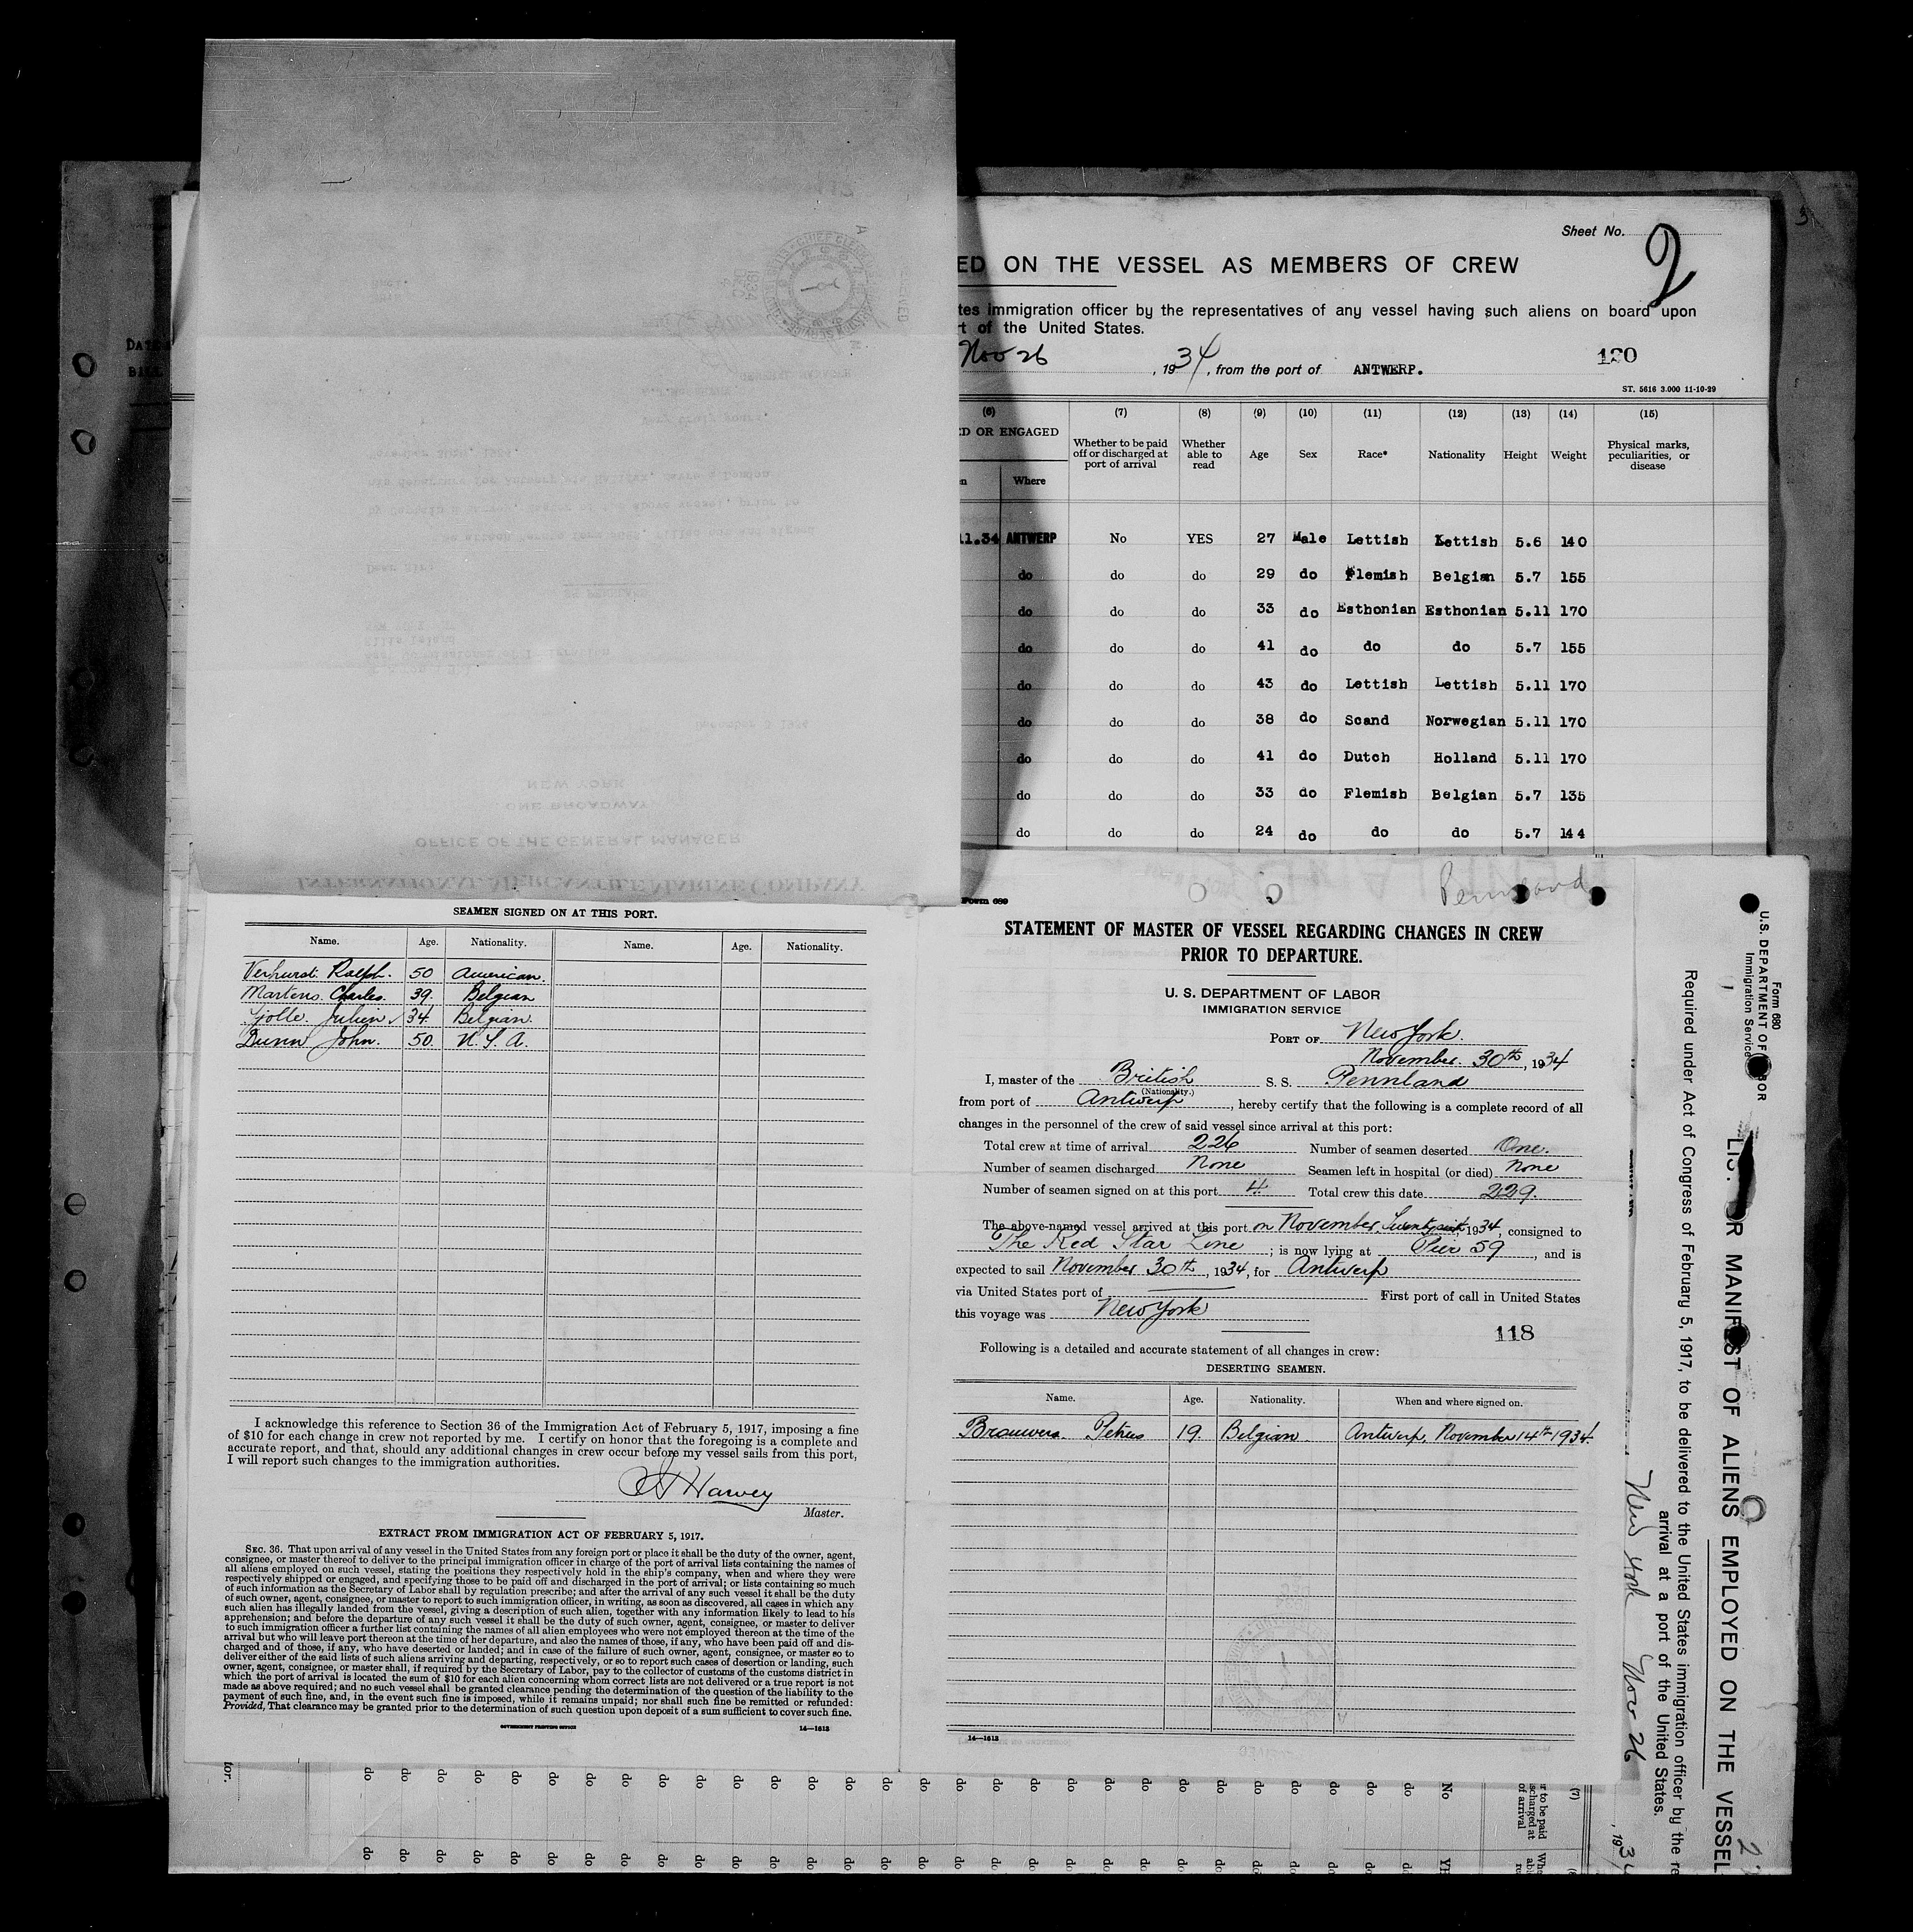 Sheet No. 2
ED ON THE VESSEL AS MEMBERS OF CREW
tes immigration officer by the representatives of any vessel having such aliens on board upon
rt of the United States.
Nov 26, 1934, from the port of ANTWERP.
120
ST. 5616 3.000 11-10-29
(6) (7) (8) (9) (10) (11) (12) (13) (14) (15)
ED OR ENGAGED Whether to be paid off or discharged at port of arrival Whether able to read Age Sex Race* Nationality Height Weight Physical marks, peculiarities, or disease
Where
11.34 ANTWERP No YES 27 Male Lettish Lettish 5.6 140
do do do 29 do Flemish Belgian 5.7 155
do do do 33 do Esthonian Esthonian 5.11 170
do do do 41 do do do 5.7 155
do do do 43 do Lettish Lettish 5.11 170
do do do 38 do Scand Norwegian 5.11 170
do do do 41 do Dutch Holland 5.11 170
do do do 33 do Flemish Belgian 5.7 135
do do do 24 do do do 5.7 144
INTERNATIONAL MERCANTILE MARINE COMPANY
OFFICE OF THE GENERAL MANAGER
ONE BROADWAY
NEW YORK
December 3 1934
Ellis Island
Dear Sir:
SEAMEN SIGNED ON AT THIS PORT.
Name. Age. Nationality. Name. Age. Nationality.
Verhurst. Ralph. 50 American.
Martens. Charles. 39. Belgian
Julien 34. Belgian.
Dunn John. 50. U. S. A.
I acknowledge this reference to Section 36 of the Immigration Act of February 5, 1917, imposing a fine
of $10 for each change in crew not reported by me. I certify on honor that the foregoing is a complete and
accurate report, and that, should any additional changes in crew occur before my vessel sails from this port,
I will report such changes to the immigration authorities.
Harvey
Master.
EXTRACT FROM IMMIGRATION ACT OF FEBRUARY 5, 1917.
SEC. 36. That upon arrival of any vessel in the United States from any foreign port or place it shall be the duty of the owner, agent,
consignee, or master thereof to deliver to the principal immigration officer in charge of the port of arrival lists containing the names of
all aliens employed on such vessel, stating the positions they respectively hold in the ship's company, when and where they were
respectively shipped or engaged, and specifying those to be paid off and discharged in the port of arrival; or lists containing so much
of such information as the Secretary of Labor shall by regulation prescribe; and after the arrival of any such vessel it shall be the duty
of such owner, agent, consignee, or master to report to such immigration officer, in writing, as soon as discovered, all cases in which any
such alien has illegally landed from the vessel, giving a description of such alien, together with any information likely to lead to his
apprehension; and before the departure of any such vessel it shall be the duty of such owner, agent, consignee, or master to deliver
to such immigration officer a further list containing the names of all alien employees who were not employed thereon at the time of the
arrival but who will leave port thereon at the time of her departure, and also the names of those, if any, who have been paid off and dis-
charged and of those, if any, who have deserted or landed; and in case of the failure of such owner, agent, consignee, or master so to
deliver either of the said lists of such aliens arriving and departing, respectively, or so to report such cases of desertion or landing, such
owner, agent, consignee, or master shall, if required by the Secretary of Labor, pay to the collector of customs of the customs district in
which the port of arrival is located the sum of $10 for each alien concerning whom correct lists are not delivered or a true report is not
made as above required; and no such vessel shall be granted clearance pending the determination of the question of the liability to the
payment of such fine, and, in the event such fine is imposed, while it remains unpaid; nor shall such fine be remitted or refunded:
Provided, That clearance may be granted prior to the determination of such question upon deposit of a sum sufficient to cover such fine.
GOVERNMENT PRINTING OFFICE 14—1613
Pennland
Form 689
STATEMENT OF MASTER OF VESSEL REGARDING CHANGES IN CREW
PRIOR TO DEPARTURE.
U. S. DEPARTMENT OF LABOR
IMMIGRATION SERVICE
PORT OF New York.
November 30th, 1934
I, master of the British S. S. Pennland
(Nationality.)
from port of Antwerp, hereby certify that the following is a complete record of all
changes in the personnel of the crew of said vessel since arrival at this port:
Total crew at time of arrival 226 Number of seamen deserted One.
Number of seamen discharged None Seamen left in hospital (or died) None
Number of seamen signed on at this port 4. Total crew this date 229.
The above-named vessel arrived at this port on November Twentysixth, 1934, consigned to
The Red Star Line; is now lying at Pier 59, and is
expected to sail November 30th, 1934, for Antwerp
via United States port of First port of call in United States
this voyage was New York
118
Following is a detailed and accurate statement of all changes in crew:
DESERTING SEAMEN.
Name. Age. Nationality. When and where signed on.
Brouwers. Petrus 19 Belgian Antwerp, November 14th 1934.
14—1613
Form 680
U.S. DEPARTMENT OF LABOR
Immigration Service
LIST OR MANIFEST OF ALIENS EMPLOYED ON THE VESSEL
Required under Act of Congress of February 5, 1917, to be delivered to the United States immigration officer by the re
arrival at a port of the United States.
New York Nov 26, 1934
(7)
r to be paid
scharged at
of arrival
No do do do do do do do do do do do do do do do do do do do do do do do do do do do do do
YE do do do do do do do do do do do do do do do do do do do do do do do do do do do do do